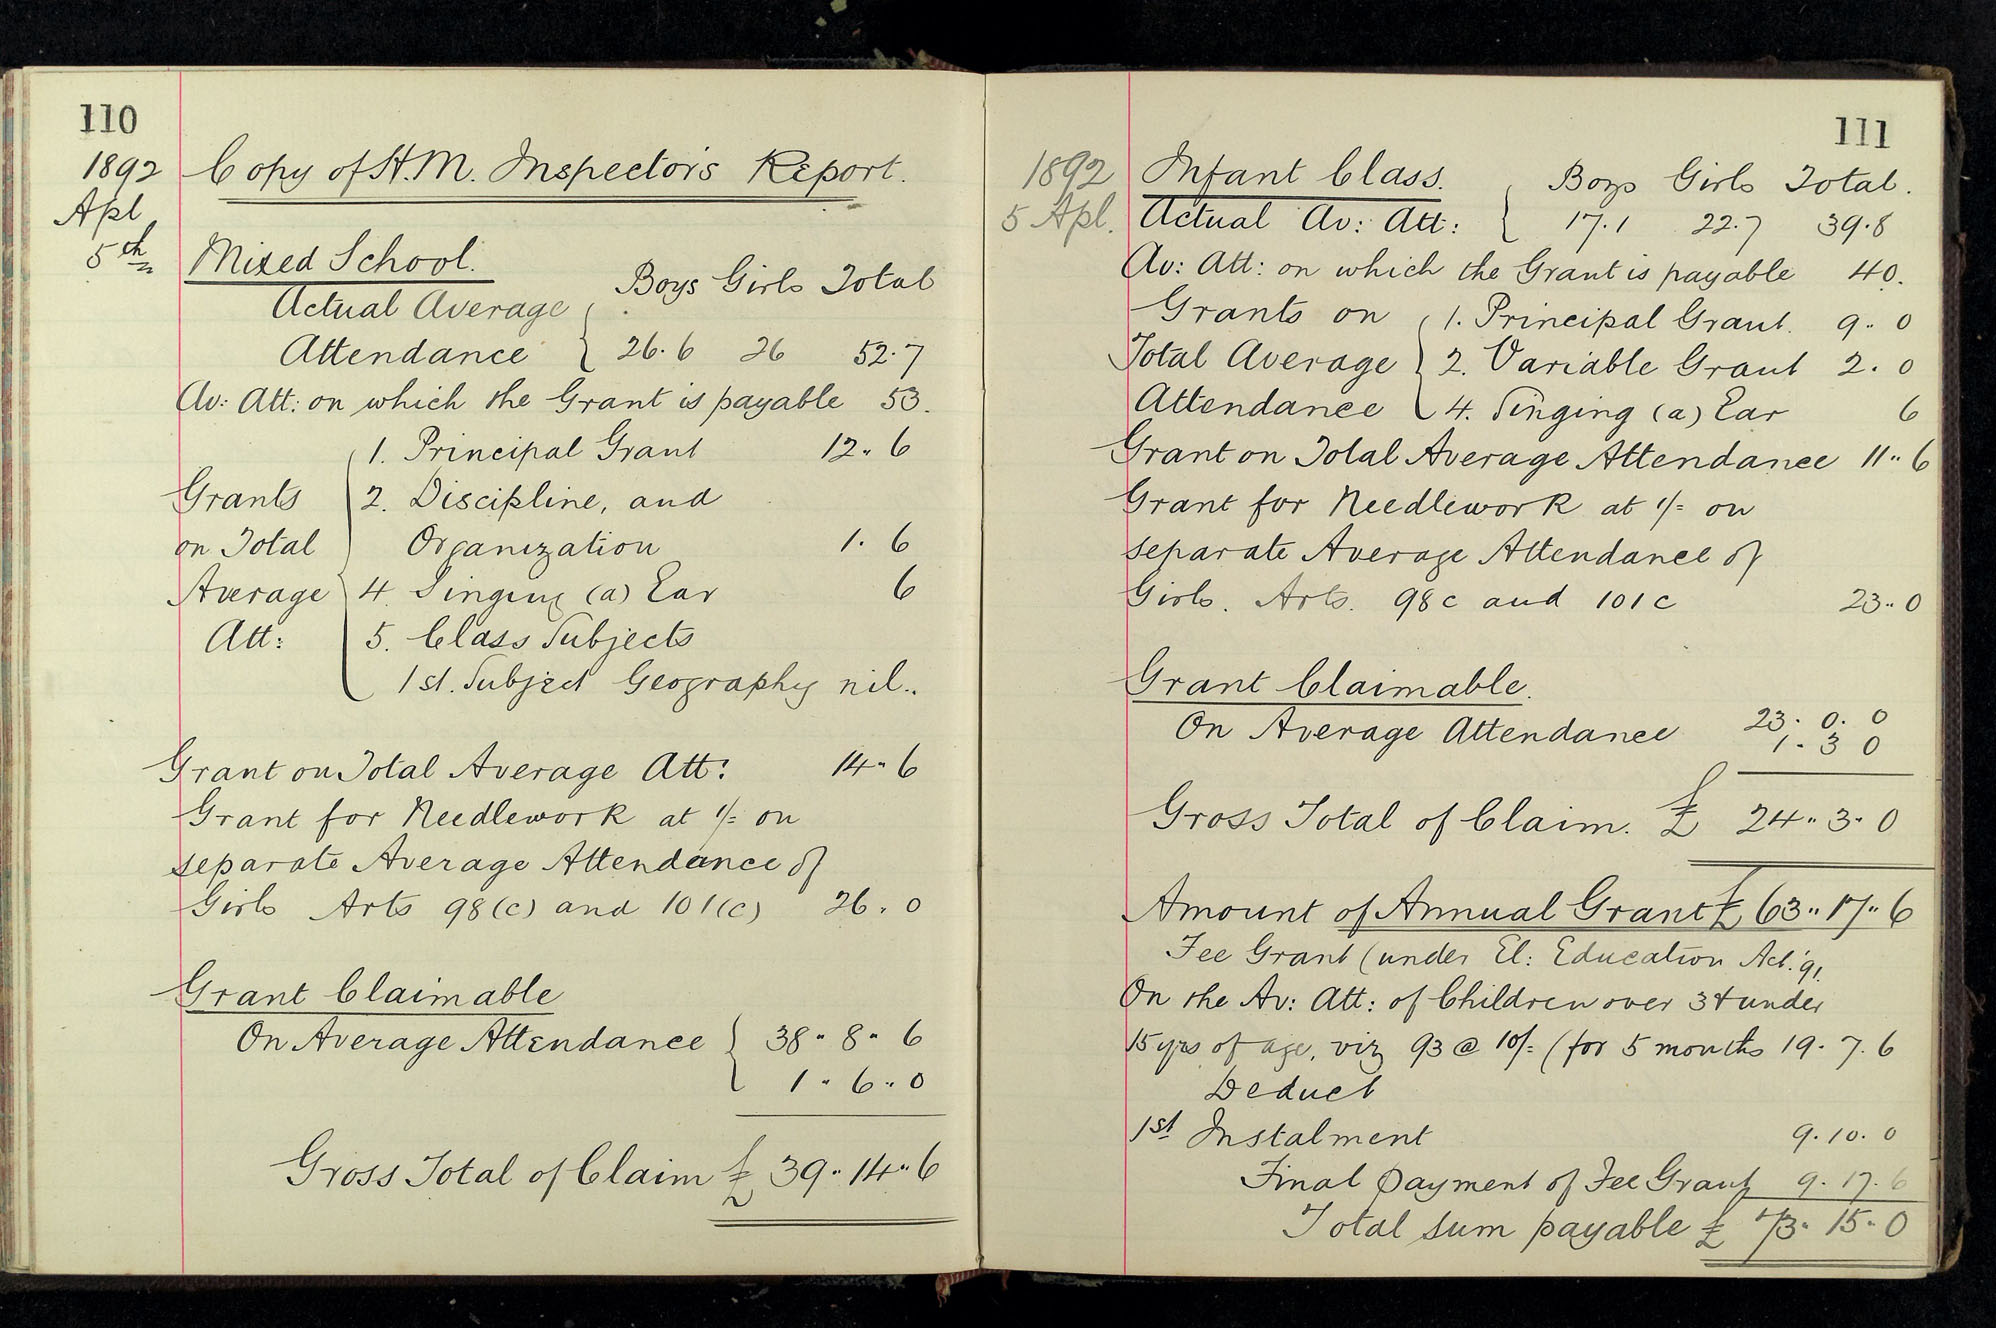 110
1892 Copy of H.M. Inspector's Report.
Apl
5th Mixed School.
Boys Girls Total
Actual Average
Attendance 26.6 26 52.7
Av: Att: on which the Grant is payable 53.
1. Principal Grant 12.. 6
Grants 2. Discipline, and
on Total Organization 1. 6
Average 4. Singing (a) Ear 6
Att: 5. Class Subjects
1st. Subject Geography nil..
Grant on Total Average Att: 14.. 6
Grant for Needlework at 1/= on
separate Average Attendance of
Girls Arts 98(c) and 101(c) 26. 0
Grant Claimable
On Average Attendance 38.. 8.. 6
1.. 6.. 0
Gross Total of Claim £ 39.. 14.. 6
111
1892 Infant Class. Boys Girls Total.
5 Apl. Actual Av: Att: 17.1 22.7 39.8
Av: Att: on which the Grant is payable 40.
Grants on 1. Principal Grant. 9.. 0
Total Average 2. Variable Grant 2. 0
Attendance 4. Singing (a) Ear 6
Grant on Total Average Attendance 11.. 6
Grant for Needlework at 1/= on
separate Average Attendance of
Girls. Arts. 98c and 101c 23.. 0
Grant Claimable.
On Average Attendance 23. 0. 0
1. 3 0
Gross Total of Claim. £ 24.. 3. 0
Amount of Annual Grant £ 63.. 17.. 6
Fee Grant (under El: Education Act. '91
On the Av: Att: of Children over 3 & under
15 yrs of age, viz 93 @ 10/= (for 5 months 19. 7. 6
Deduct
1st Instalment 9. 10. 0
Final Payment of Fee Grant 9. 17. 6
Total sum payable £ 73. 15. 0